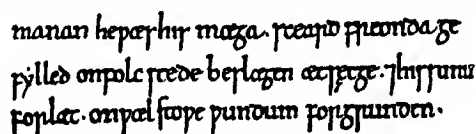 manan heƿæshis mæga· sceard freonda ge
fẏlled onfolcstede beslægen ætsęcge· ⁊hissunu
forlæt· onƿælstoƿe ƿundum forgrunden·